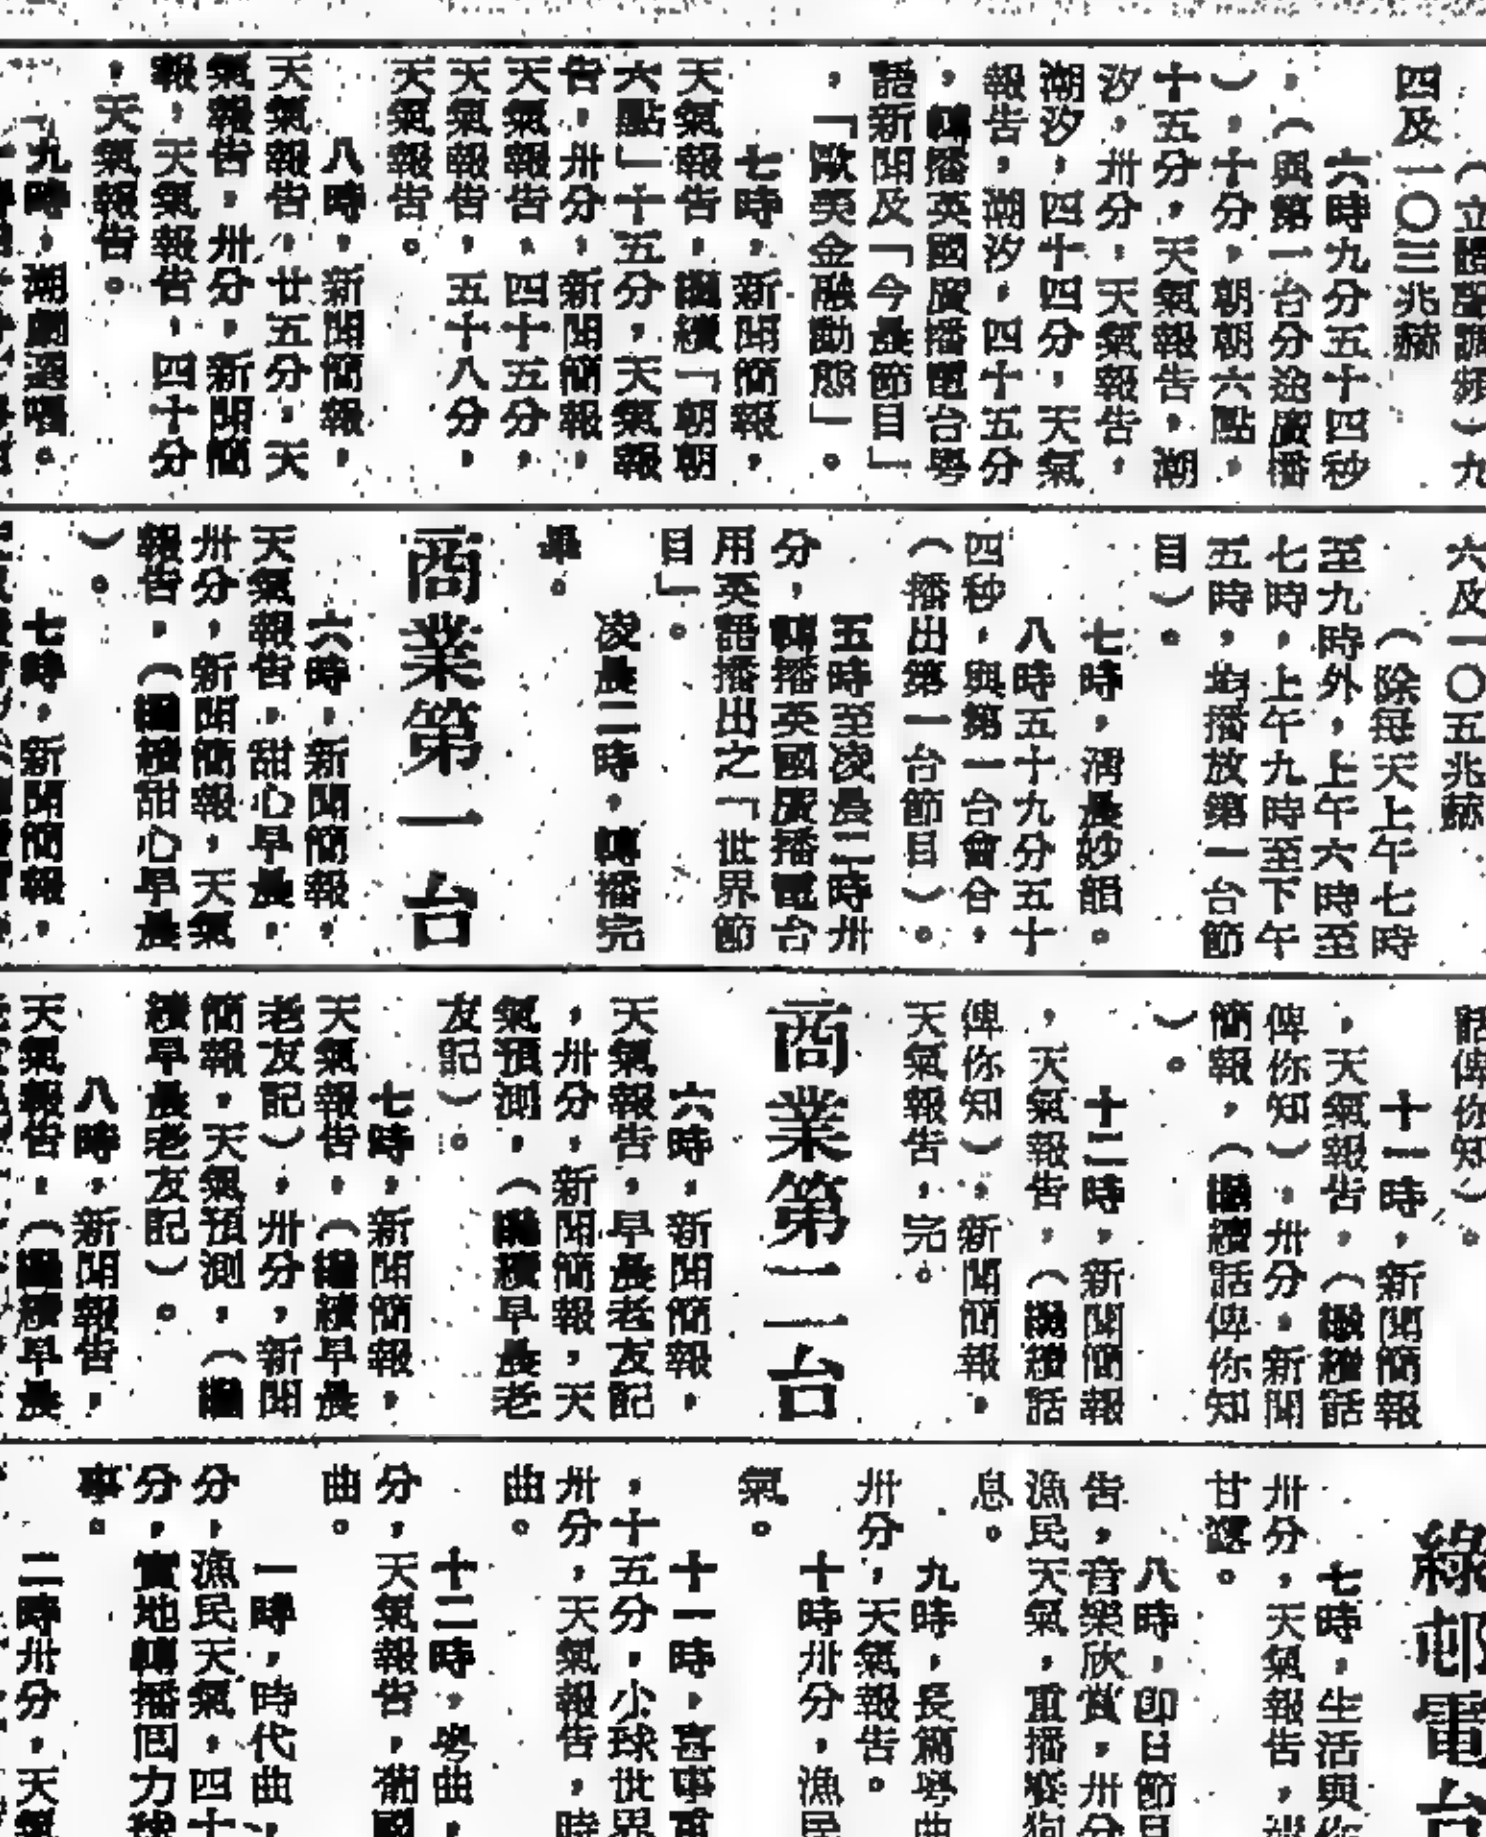 （立體聲調頻）九
四及一〇三兆赫
六時九分五十四秒
，（與第一台分途廣播
），十分，朝朝六點，
十五分，天氣報告，潮
汐，卅分，天氣報告，
潮汐，四十四分，天氣
報告，潮汐，四十五分
，轉播英國廣播電台粵
語新聞及「今晨節目」
，「歐美金融動態」。
七時，新聞簡報，
天氣報告，繼續「朝朝
六點」十五分，天氣報
告，卅分，新聞簡報，
天氣報告，四十五分，
天氣報告，五十八分，
天氣報告。
八時，新聞簡報，
天氣報告，廿五分，天
氣報告，卅分，新聞簡
報，天氣報告，四十分
，天氣報告。
九時，潮劇選唱。
六及一〇五兆赫
（除每天上午七時
至九時外，上午六時至
七時，上午九時至下午
五時，均播放第一台節
目）。
七時，清晨妙韻。
八時五十九分五十
四秒，與第一台會合，
（播出第一台節目）。
五時至凌晨二時卅
分，轉播英國廣播電台
用英語播出之「世界節
目」。
凌晨二時，轉播完
畢。
商業第一台
六時，新聞簡報，
天氣報告，甜心早晨，
卅分，新聞簡報，天氣
報告，（繼續甜心早晨
）。
七時，新聞簡報，
話俾你知）。
十一時，新聞簡報
，天氣報告，（繼續話
俾你知），卅分，新聞
簡報，（繼續話俾你知
）。
十二時，新聞簡報
，天氣報告，（繼續話
俾你知），新聞簡報，
天氣報告，完。
商業第二台
六時，新聞簡報，
天氣報告，早晨老友記
，卅分，新聞簡報，天
氣預測，（繼續早晨老
友記）。
七時，新聞簡報，
天氣報告，（繼續早晨
老友記），卅分，新聞
簡報，天氣預測，（繼
續早晨老友記）。
八時，新聞報告，
天氣報告，（繼續早晨
綠邨電台
七時，生活與你
卅分，天氣報告，
甘露。
八時，即日節目
告，音樂欣賞，卅分
漁民天氣，重播賽狗
息。
九時，長篇粵曲
卅分，天氣報告。
十時卅分，漁民
氣。
十一時，喜事重
，十五分，小球世界
卅分，天氣報告，時
曲。
十二時，粵曲，
分，天氣報告，葡國
曲。
一時，時代曲，
分，漁民天氣，四十
分，實地轉播回力球
事。
二時卅分，天氣